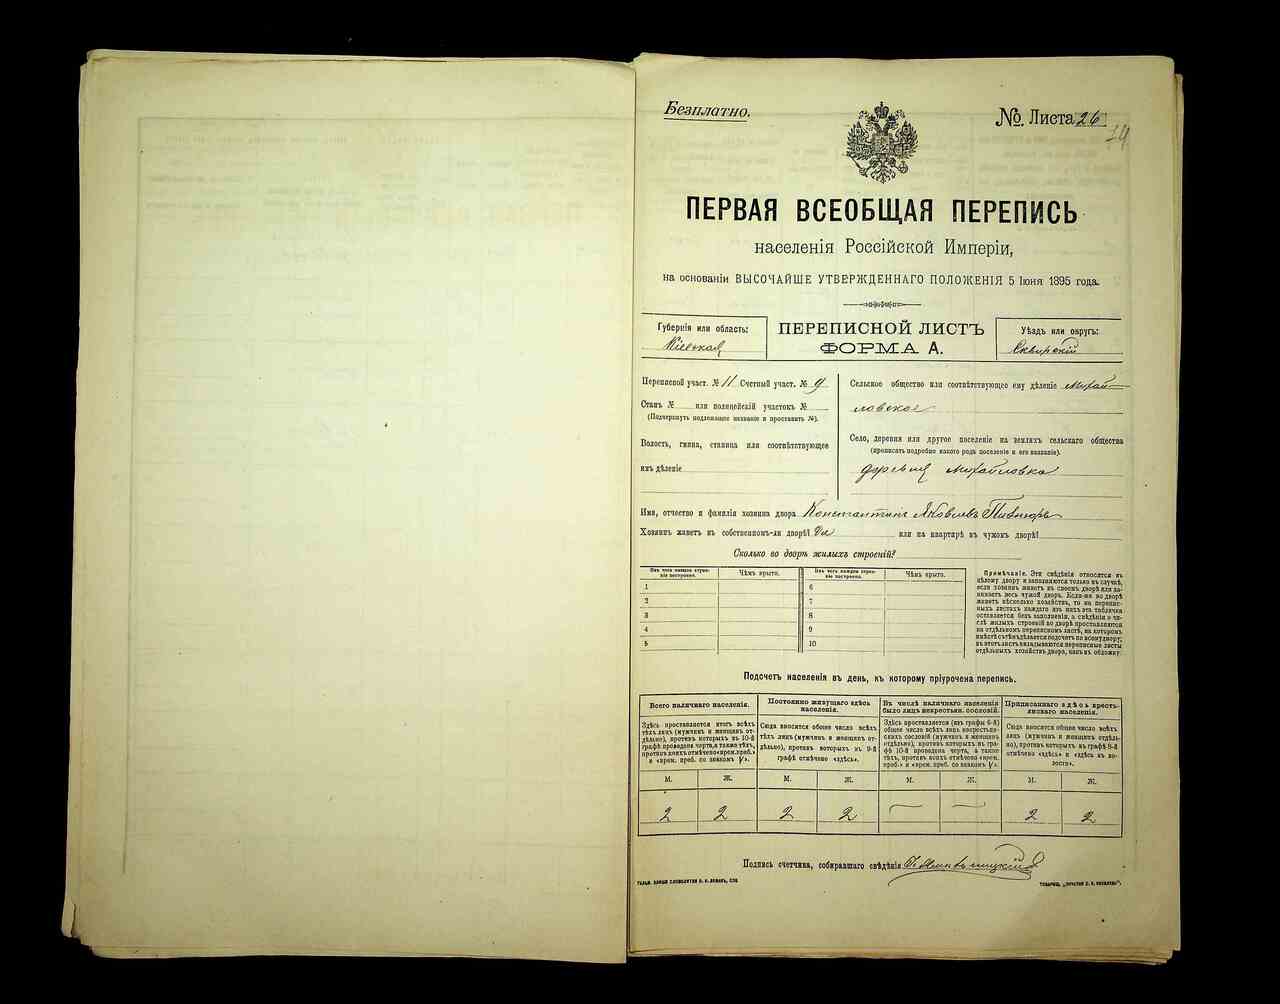 Безплатно.
№ Листа 26
ПЕРВАЯ ВСЕОБЩАЯ ПЕРЕПИСЬ
населенія Россійской Имперіи,
на основаніи ВЫСОЧАЙШЕ УТВЕРЖДЕННАГО ПОЛОЖЕНІЯ 5 Іюня 1895 года.
Губернія или область:
Кіевская
ПЕРЕПИСНОЙ ЛИСТЪ
ФОРМА А.
Уѣздъ или округъ:
Сквирскій
Переписной участ. № 11 Счетный участ. № 9
Станъ № или полицейскій участокъ №
(Подчеркнуть подлежащее названіе и проставить №).
Волость, гмина, станица или соотвѣтствующее
имъ дѣленіе
Сельское общество или соотвѣтствующее ему дѣленіе Михай-
ловское
Село, деревня или другое поселеніе на земляхъ сельскаго общества
(прописать подробно какого рода поселеніе и его названіе).
деревня Михайловка
Имя, отчество и фамилія хозяина двора Константинъ Яковлевъ Пивторъ
Хозяинъ живетъ въ собственномъ-ли дворѣ? Да или на квартирѣ въ чужомъ дворѣ?
Сколько во дворѣ жилыхъ строеній?
Изъ чего каждое строе-
ніе построено.
Чѣмъ крыто.
Изъ чего каждое строе-
ніе построено.
Чѣмъ крыто.
1 6
2 7
3 8
4 9
5 10
Примѣчаніе. Эти свѣдѣнія относятся къ
цѣлому двору и заполняются только въ случаѣ,
если хозяинъ живетъ въ своемъ дворѣ или за-
нимаетъ весь чужой дворъ. Если-же во дворѣ
живетъ нѣсколько хозяйствъ, то на перепис-
ныхъ листахъ каждаго изъ нихъ эта табличка
оставляется безъ заполненія, а свѣдѣнія о чи-
слѣ жилыхъ строеній во дворѣ проставляются
на отдѣльномъ переписномъ листѣ, на которомъ
вмѣстѣ съ тѣмъ дѣлается подсчетъ по всему двору;
въ этотъ листъ вкладываются переписные листы
отдѣльныхъ хозяйствъ двора, какъ въ обложку.
Подсчетъ населенія въ день, къ которому пріурочена перепись.
Всего наличнаго населенія.
Здѣсь проставляется итогъ всѣхъ
тѣхъ лицъ (мужчинъ и женщинъ от-
дѣльно), противъ которыхъ въ 10-й
графѣ проведена черта, а также тѣхъ,
противъ коихъ отмѣчено «врем. преб.»
и «врем. преб. со знакомъ V».
Постоянно живущаго здѣсь
населенія.
Сюда вносится общее число всѣхъ
тѣхъ лицъ (мужчинъ и женщинъ от-
дѣльно), противъ которыхъ въ 9-й
графѣ отмѣчено «здѣсь».
Въ числѣ наличнаго населенія
было лицъ некрестьян. сословій.
Здѣсь проставляется (изъ графы 6-й)
общее число всѣхъ лицъ некрестьян-
скихъ сословій (мужчинъ и женщинъ
отдѣльно), противъ которыхъ въ гра-
фѣ 10-й проведена черта, а также
тѣхъ, противъ коихъ отмѣчено «врем.
преб.» и «врем. преб. со знакомъ V».
Приписаннаго здѣсь кресть-
янскаго населенія.
Сюда вносится общее число всѣхъ
лицъ (мужчинъ и женщинъ отдѣль-
но), противъ которыхъ въ графѣ 8-й
отмѣчено «здѣсь» и «здѣсь въ во-
лости».
М. Ж. М. Ж. М. Ж. М. Ж.
2 2 2 2 — — 2 2
Подпись счетчика, собиравшаго свѣдѣнія